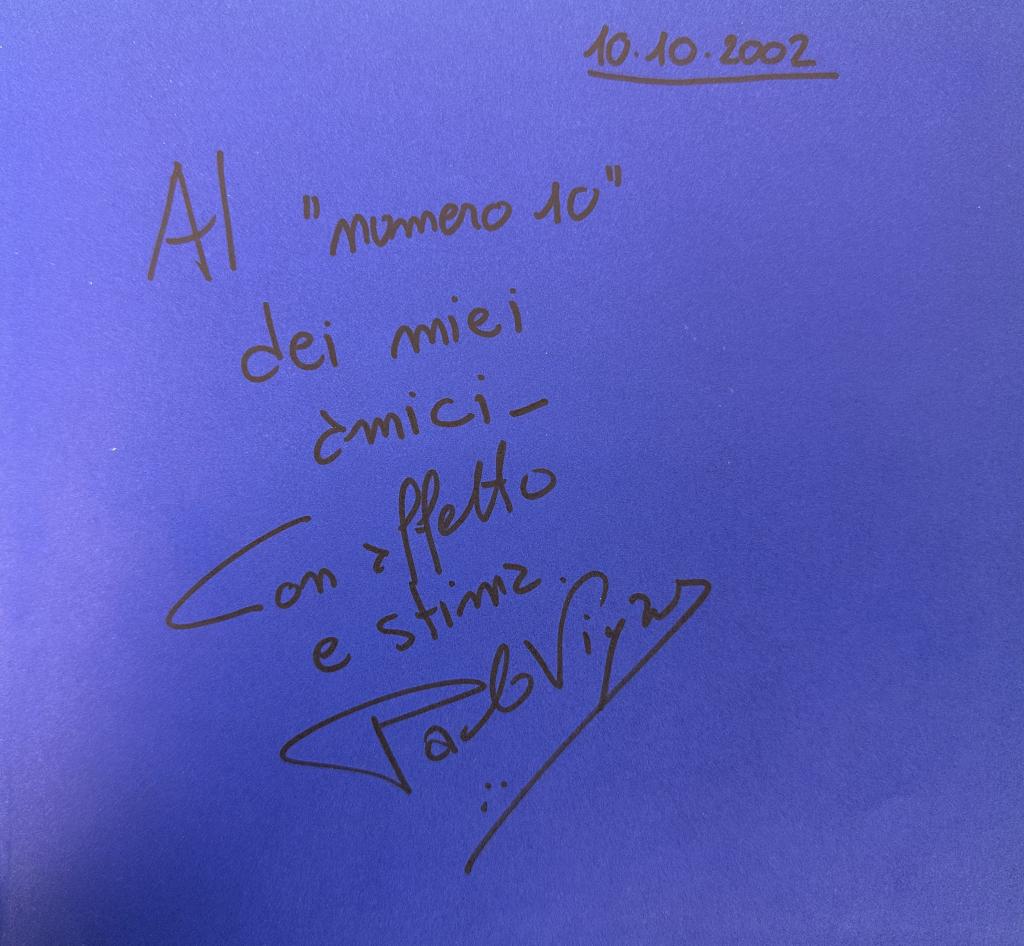 10.10.2002
Al "numero 10"
dei miei
amici-
Con affetto
e stima.
Paolo